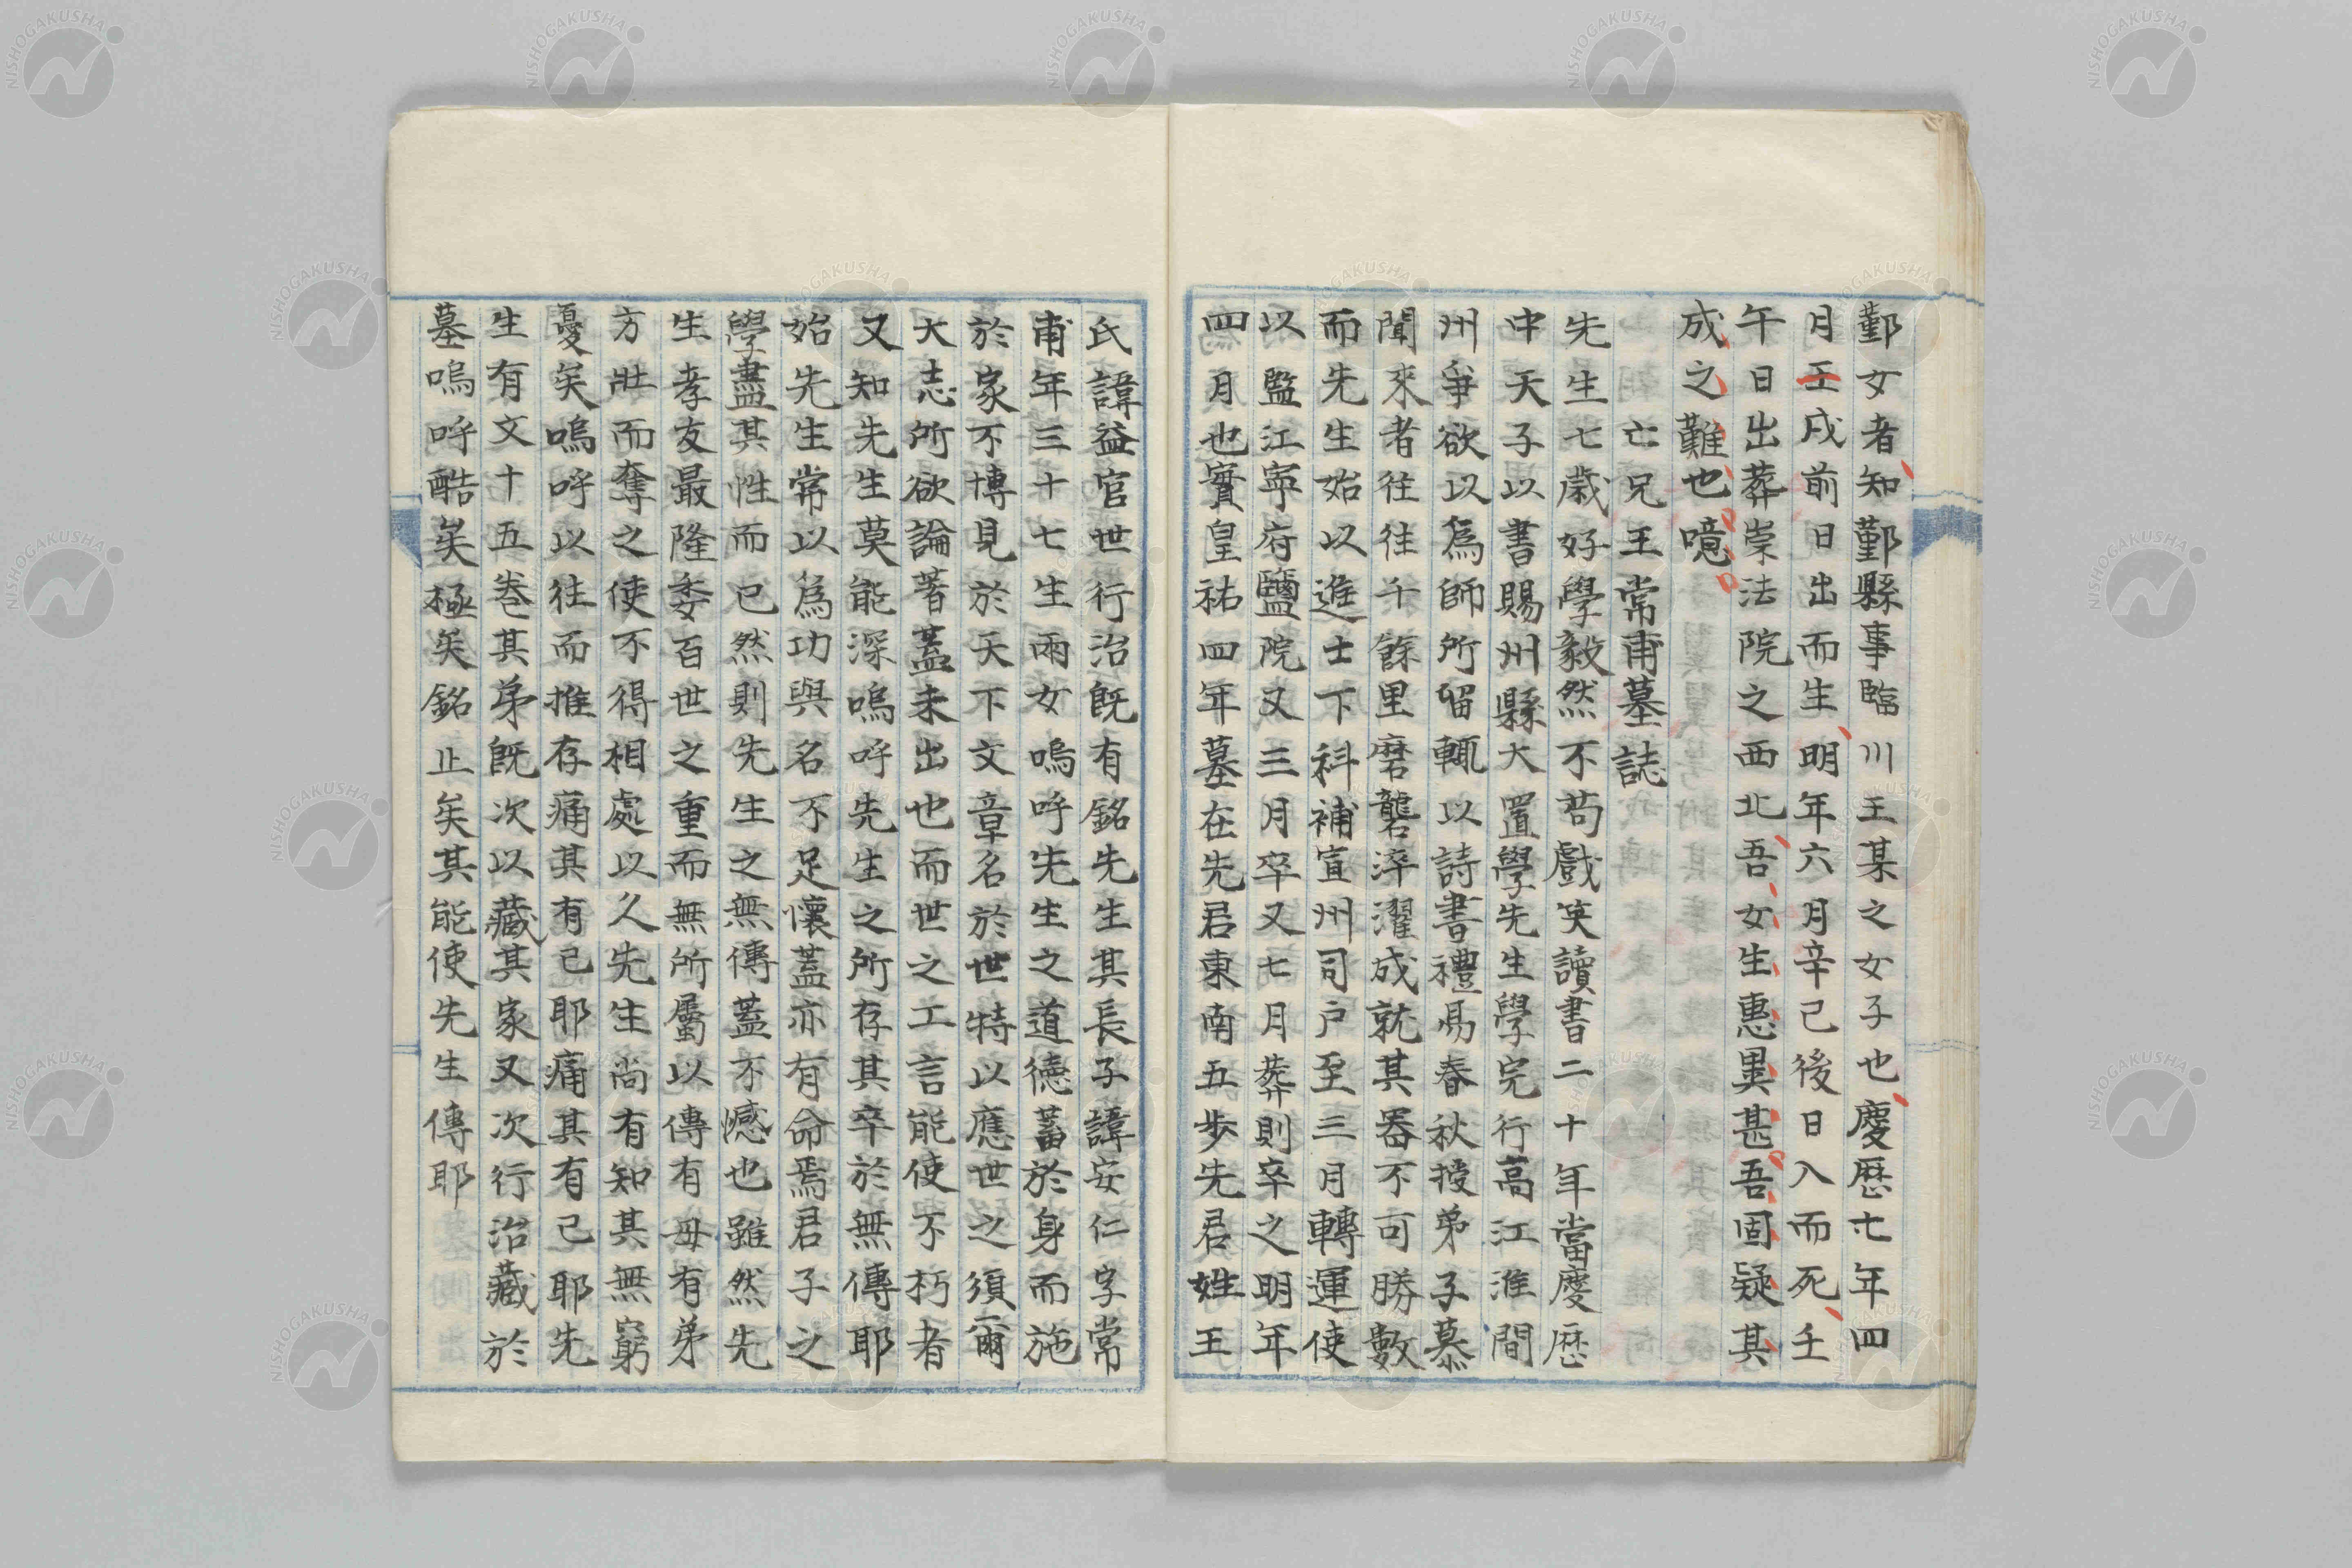 鄞女者知鄞縣事臨川王某之女子也慶歴七年四
月壬戌前日出而生明年六月辛己後日入而死壬
午日出葬崇法院之西北吾女生惠異甚吾固疑其
成之難也噫
亡兄王常甫墓誌
先生七歳好學毅然不苟戲笑讀書二十年當慶歴
中天子以書賜州縣大置學先生學完行高江淮間
州爭欲以爲師所留輒以詩書禮易春秋授弟子慕
聞來者往往千餘里磨礱淬濯成就其器不可勝數
而先生始以進士下科補宣州司戸至三月轉運使
以監江寧府鹽院又三月卒又七月葬則卒之明年
四月也實皇祐四年墓在先君東南五步先君姓王
氏諱益官世行治既有銘先生其長子諱安仁字常
甫年三十七生兩女嗚呼先生之道德蓄於身而施
於家不博見於天下文章名於世特以應世之須爾
大志所欲論著蓋未出也而世之工言能使不朽者
又知先生莫能深嗚呼先生之所存其卒於無傳耶
始先生常以爲功與名不足懷蓋亦有命焉君子之
學盡其性而已然則先生之無傳蓋不憾也雖然先
生孝友最隆委百世之重而無所屬以傳有母有弟
方壯而奪之使不得相處以久先生尚有知其無窮
憂矣嗚呼以往而推存痛其有已耶痛其有已耶先
生有文十五巻其弟既次以藏其家又次行治藏於
墓嗚呼酷矣極矣銘止矣其能使先生傳耶
NISHOGAKUSHA